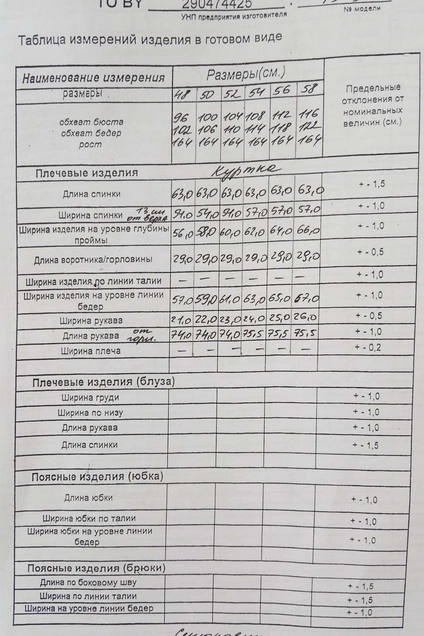 ТО BY 290474425
УНП предприятия изготовителя № модели
Таблица измерений изделия в готовом виде
Наименование измерения Размеры(см.) Предельные отклонения от номинальных величин (см.)
размеры 48 50 52 54 56 58
обхват бюста 96 100 104 108 112 116
обхват бедер 102 106 110 114 118 122
рост 164 164 164 164 164 164
Плечевые изделия Куртка
Длина спинки 63,0 63,0 63,0 63,0 63,0 63,0 + - 1,5
Ширина спинки 54,0 57,0 57,0 57,0 + - 1,0
Ширина изделия на уровне глубины проймы 56,0 58,0 60,0 62,0 64,0 66,0 + - 1,0
Длина воротника/горловины 29,0 29,0 29,0 29,0 29,0 29,0 + - 0,5
Ширина изделия по линии талии – – – – – – + - 1,0
Ширина изделия на уровне линии бедер 57,0 59,0 61,0 63,0 65,0 67,0 + - 1,0
Ширина рукава 21,0 22,0 23,0 24,0 25,0 26,0 + - 0,5
Длина рукава от горл. 74,0 74,0 74,0 75,5 75,5 75,5 + - 1,0
Ширина плеча – – – – – – + - 0,2
Плечевые изделия (блуза)
Ширина груди + - 1,0
Ширина по низу + - 1,0
Длина рукава + - 1,0
Длина спинки + - 1,5
Поясные изделия (юбка)
Длина юбки + - 1,0
Ширина юбки по талии + - 1,0
Ширина юбки на уровне линии бедер + - 1,0
Поясные изделия (брюки)
Длина по боковому шву + - 1,5
Ширина по линии талии + - 1,5
Ширина на уровне линии бедер + - 1,0